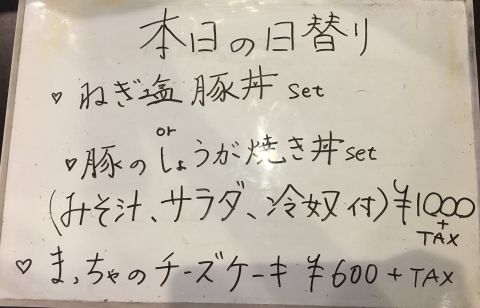 本日の日替り
♡ ねぎ塩豚丼 set
or
♡ 豚のしょうが焼き丼 set
(みそ汁、サラダ、冷奴付) ¥1000
+
TAX
♡ まっちゃのチーズケーキ ¥600 + TAX